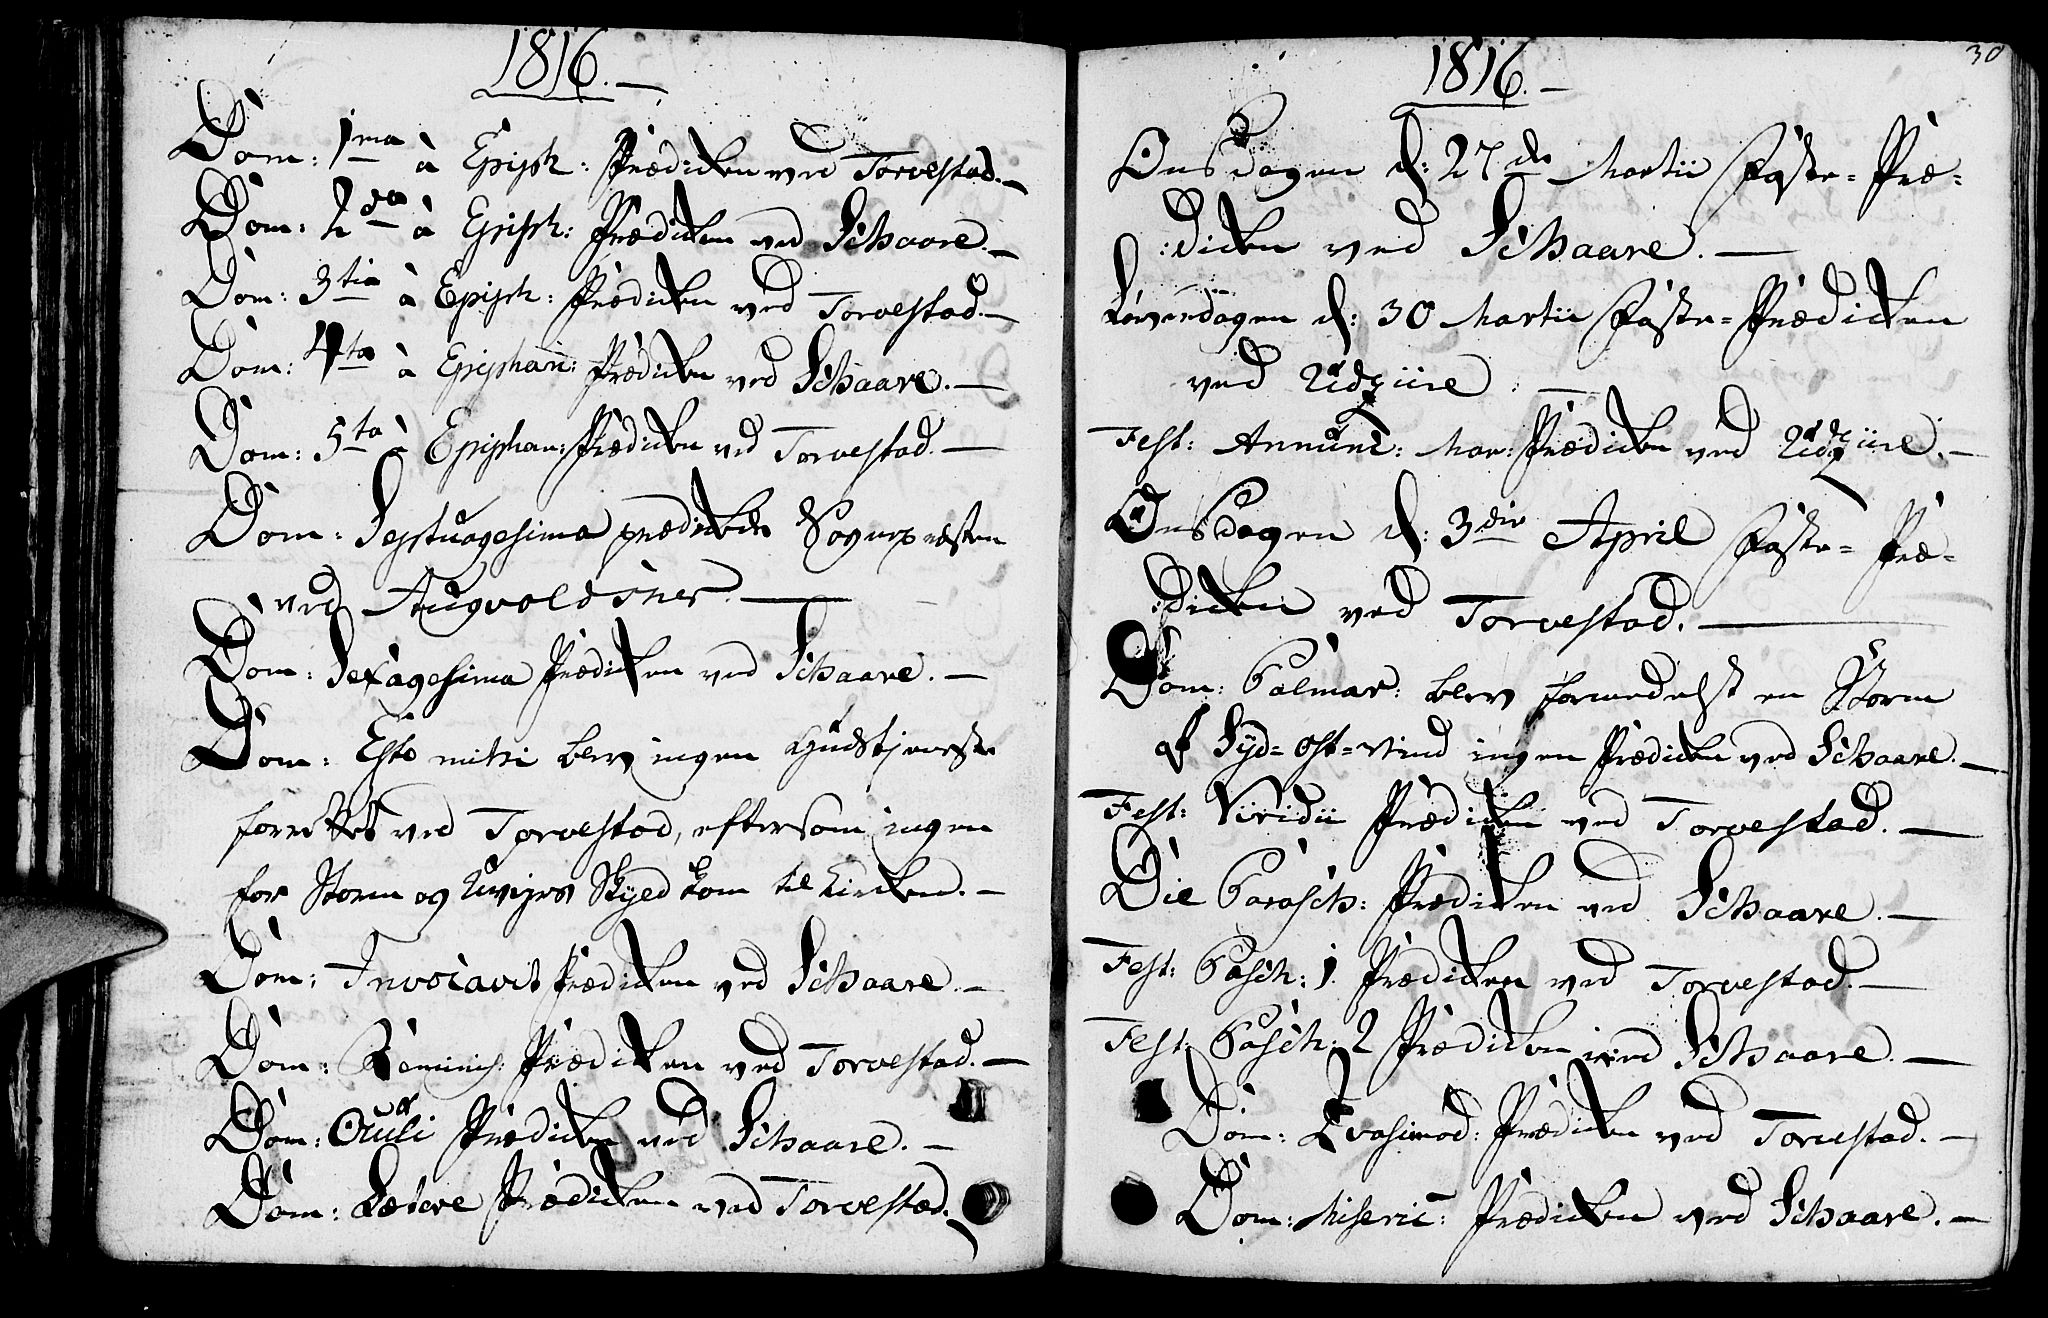 1816.
Dom: 1ma à Epiph: Prædiken ved Torvestad.
Dom: 2da à Epiph: Prædiken ved Schaare.
Dom: 3tia à Epiph: Prædiken ved Torvestad.
Dom: 4ta à Epiphan: Prædiken ved Schaare.
Dom: 5ta à Epiphan: Prædiken ved Torvestad.
Dom: Septuagesima prædikede Sognepræsten
ved Augvoldsnes.
Dom: Sexagesima Prædiken ved Schaare.
Dom: Esto mihi blev ingen Gudstjeneste
forrettet ved Torvestad, eftersom ingen
for Storm og Uvejrs Skyld kom til Kirken.
Dom: Invocavit Prædiken ved Schaare.
Dom: Reminis: Prædiken ved Torvestad.
Dom: Oculi Prædiken ved Schaare.
Dom: Lætare Prædiken ved Torvestad.
1816.
30
Onsdagen d: 27de Martii Faste-Præ-
:diken ved Schaare.
Løverdagen d: 30 Martii Faste-Prædiken
ved Udziire.
Fest: Annunt: Mar: Prædiken ved Udziire.
Onsdagen d: 3die April Faste-Præ-
:diken ved Torvestad.
Dom: Palmar: blev formedelst en Storm
af Syd-Ost-Vind ingen Prædiken ved Schaare.
Fest: Viridii Prædiken ved Torvestad.
Die Parasch: Prædiken ved Schaare.
Fest: Pasch: 1. Prædiken ved Torvestad.
Fest: Pasch: 2 Prædiken ved Schaare.
Dom: Qvasimod: Prædiken ved Torvestad.
Dom: Miseric: Prædiken ved Schaare.